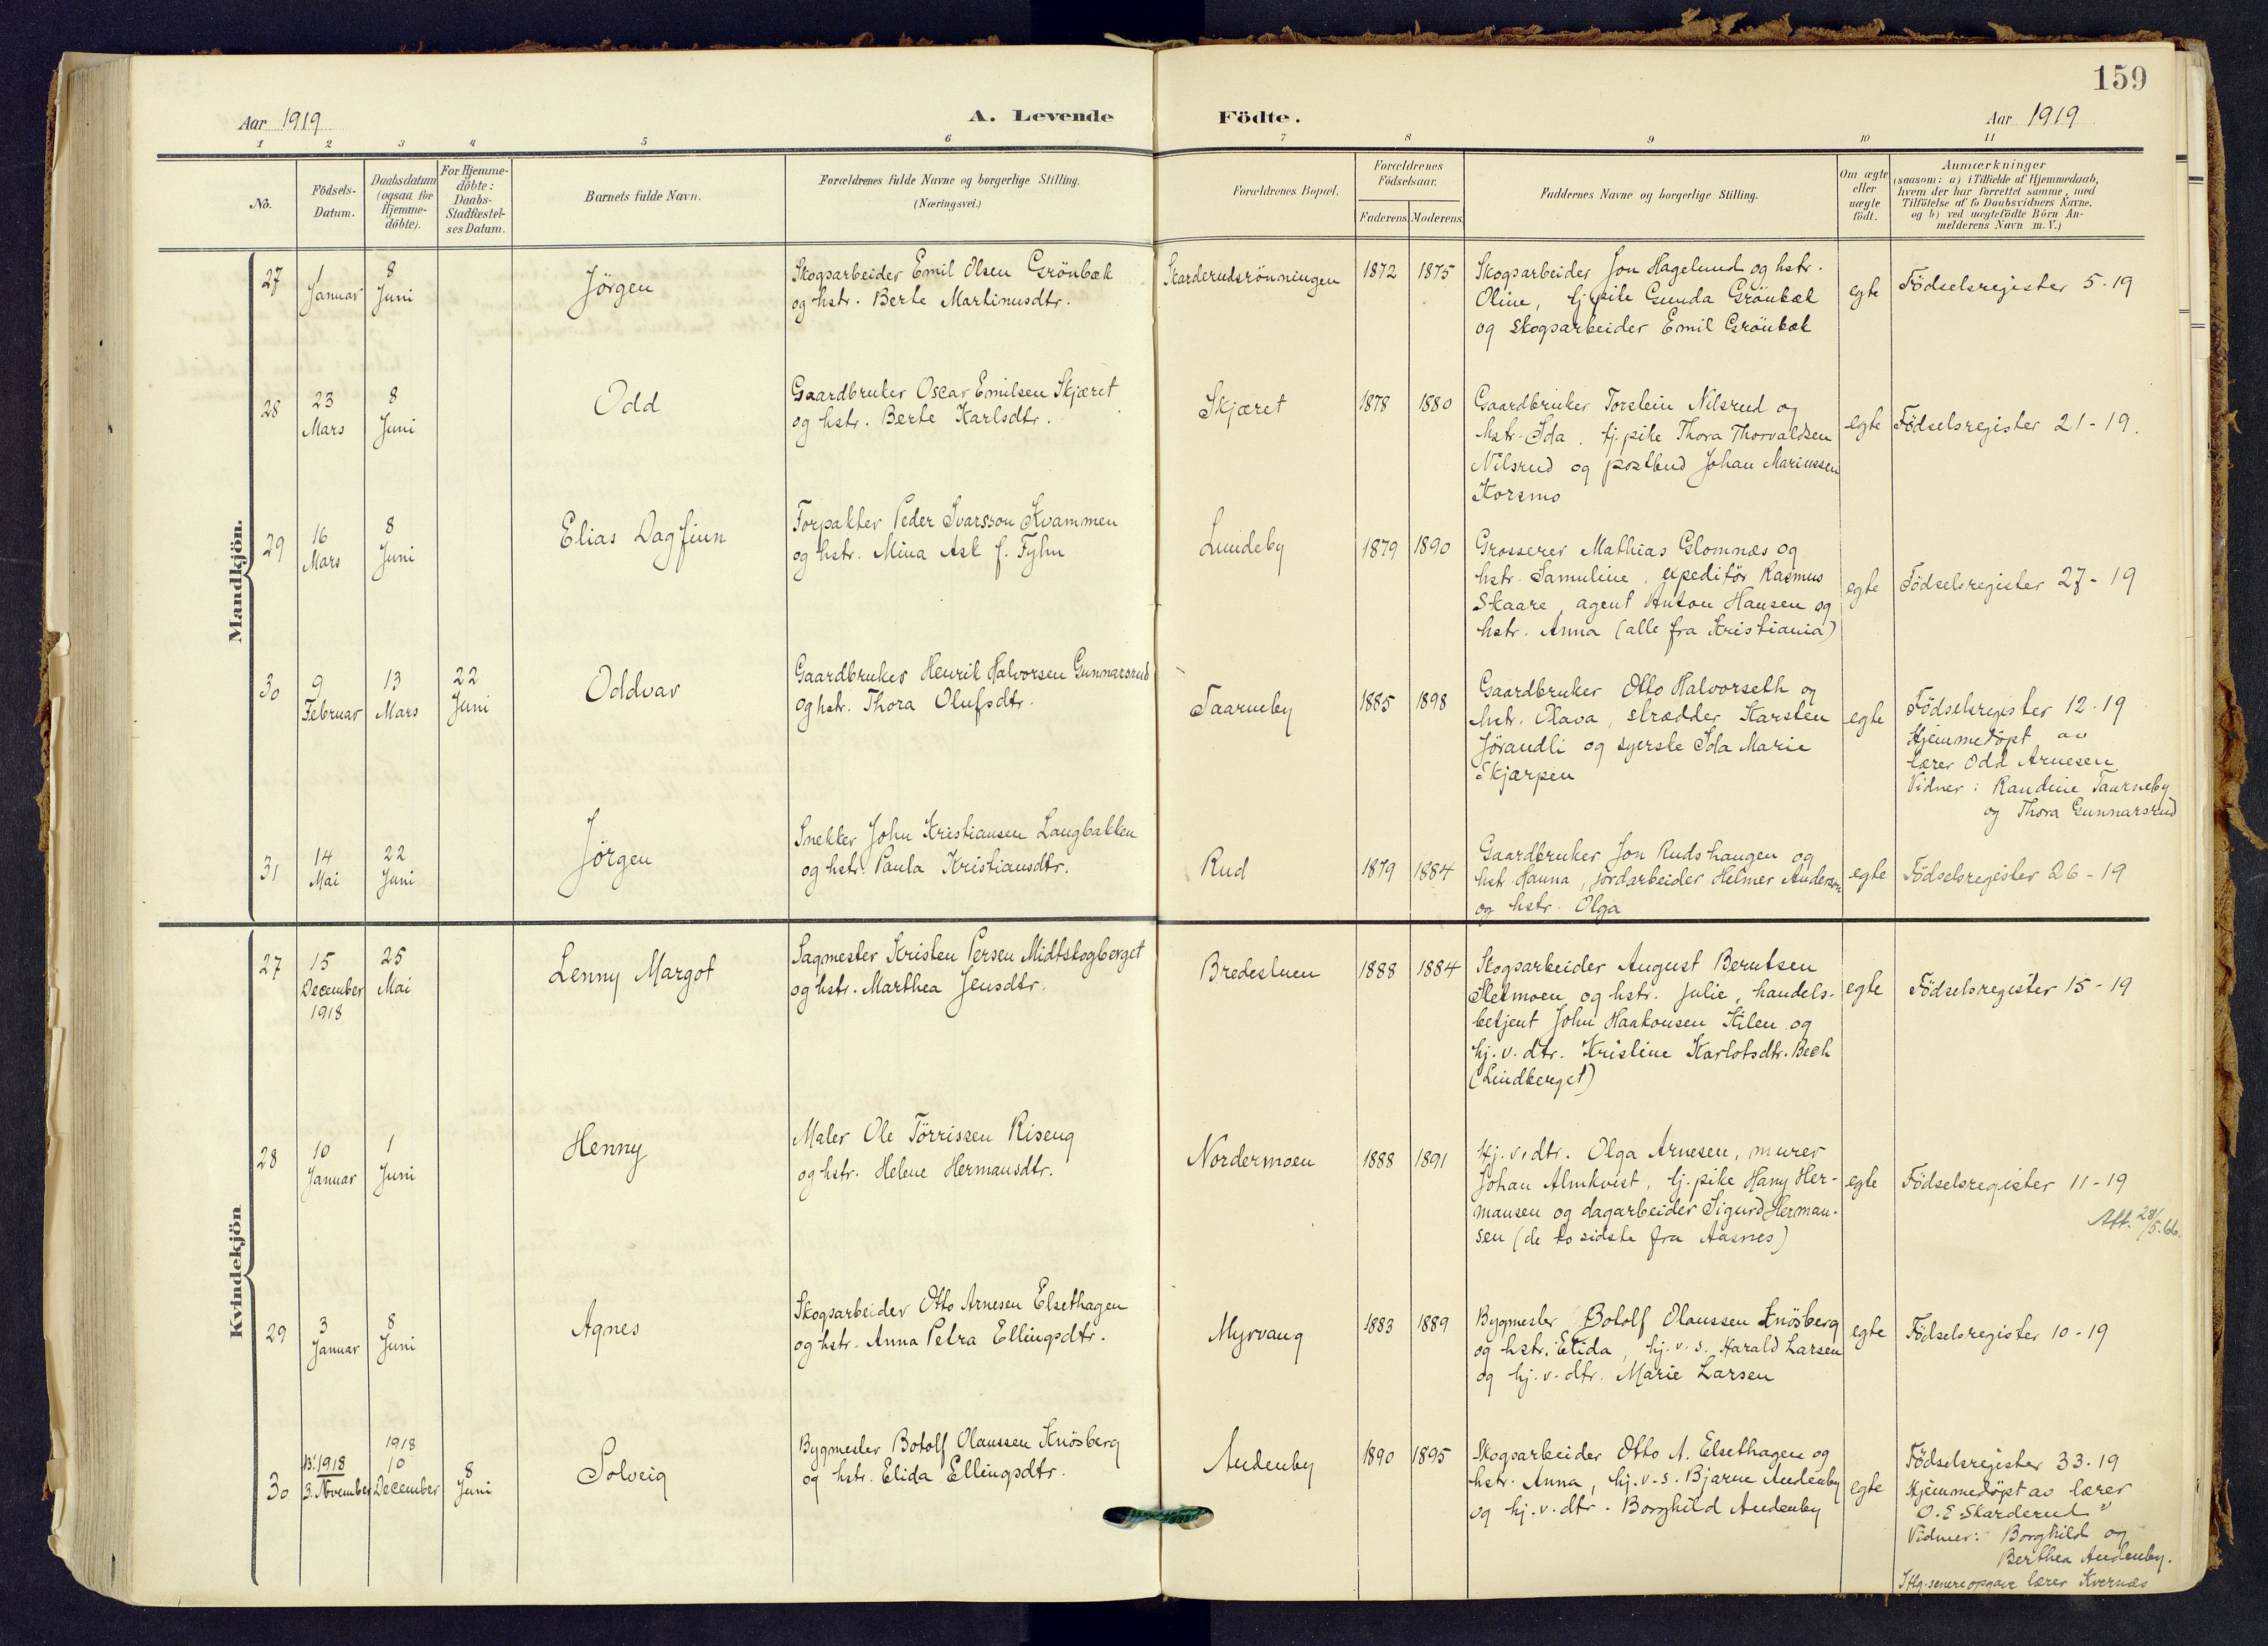 159
Aar 1919
A. Levende Födte.
Aar 1919
1 2 3 4 5 6 7 8 9 10 11
No.
Födsels-Datum.
Daabsdatum (ogsaa for Hjemme-döbte).
For Hjemme-döbte: Daabs-Stadfæstel-ses Datum.
Barnets fulde Navn.
Forældrenes fulde Navne og borgerlige Stilling. (Næringsvei.)
Forældrenes Bopæl.
Forældrenes Födselsaar.
Faderens. Moderens.
Faddernes Navne og borgerlige Stilling.
Om ægte eller uægte födt.
Anmærkninger
(saasom: a) i Tilfælde af Hjemmedaab,
hvem der har forrettet samme, med
Tilföielse af to Daabsvidners Navne,
og b) ved uægtefödte Börn An-
melderens Navn m. V.)
Mandkjön.
27
1 Januar
8 Juni
Jörgen
Skogsarbeider Emil Olsen Grönbæk
og hstr. Berte Martinusdtr.
Skarderudsrönningen
1872 1875
Skogsarbeider Jon Hagelund og hstr.
Oline, tj. pike Gunda Grönbæk
og skogsarbeider Emil Grönbæk
egte
Födselsregister 5-19
28
23 Mars
8 Juni
Odd
Gaardbruker Oscar Emilsen Skjæret
og hstr. Berte Karlsdtr.
Skjæret
1878 1880
Gaardbruker Torstein Nilsrud og
hstr. Ida, tj. pike Thora Thorvaldsen
Nilsrud og postbud Johan Mariussen
Korsmo
egte
Födselsregister 21-19.
29
16 Mars
8 Juni
Elias Dagfinn
Forpakter Peder Ivarsson Kvammen
og hstr. Mina Ask f. Fyhn
Lundeby
1879 1890
Grosserer Mathias Glomnæs og
hstr. Samuline, expeditör Rasmus
Skaare, agent Anton Hansen og
hstr. Anna (alle fra Kristiania)
egte
Födselsregister 27-19
30
9 Februar
13 Mars
22 Juni
Oddvar
Gaardbruker Henrik Halvorsen Gunnarsrud
og hstr. Thora Olufsdtr.
Taarneby
1885 1898
Gaardbruker Otto Halvorseth og
hstr. Olava, skrædder Karsten
Jörandli og syerske Ida Marie
Skjærpen
egte
Födselsregister 12-19
Hjemmedöpt av
lærer Odd Arnesen
Vidner: Randine Taarneby
og Thora Gunnarsrud
31
14 Mai
22 Juni
Jörgen
Snekker John Kristiansen Langbakken
og hstr. Paula Kristiansdtr.
Rud
1879 1884
Gaardbruker Jon Rudshaugen og
hstr. Hanna, jordarbeider Helmer Andersen
og hstr. Olga
egte
Födselsregister 26-19
Kvindekjön
27
15 December 1918
25 Mai
Lenny Margot
Sagmester Kristen Persen Midtskogberget
og hstr. Marthea Jensdtr.
Bredesluen
1888 1884
Skogsarbeider August Berntsen
Stelmoen og hstr. Julie, handels-
betjent John Haakonsen Kilen og
hj. v. dtr. Kristine Karlotsdtr. Bech
(Lindberget)
egte
Födselsregister 15-19
28
10 Januar
1 Juni
Henny
Maler Ole Törrissen Riseng
og hstr. Helene Hermansdtr.
Nordermoen
1888 1891
Hj. v. dtr. Olga Arnesen, murer
Johan Almkvist, tj. pike Hany Her-
mansen og dagarbeider Sigurd Herman-
sen (de to sidste fra Aasnes)
egte
Födselsregister 11-19
Att. 28/5.66.
29
3 Januar
8 Juni
Agnes
Skogsarbeider Otto Arnesen Elsethagen
og hstr. Anna Petra Ellingsdtr.
Myrvang
1883 1889
Bygmester Botolf Olaussen Knösberg
og hstr. Elida, hj. v. s. Harald Larsen
og hj. v. dtr. Marie Larsen
egte
Födselsregister 10-19
30
1918
3. November
1918
10 December
8 Juni
Solveig
Bygmester Botolf Olaussen Knösberg
og hstr. Elida Ellingsdtr.
Audenby
1890 1895
Skogsarbeider Otto A. Elsethagen og
hstr. Anna, hj. v. s. Bjarne Audenby
og hj. v. dtr. Borghild Audenby
egte
Födselsregister 33-19
Hjemmedöpt av lærer
O. E. Skarderud
Vidner: Borghild og
Berthea Audenby.
senere opgave lærer Kvernæs